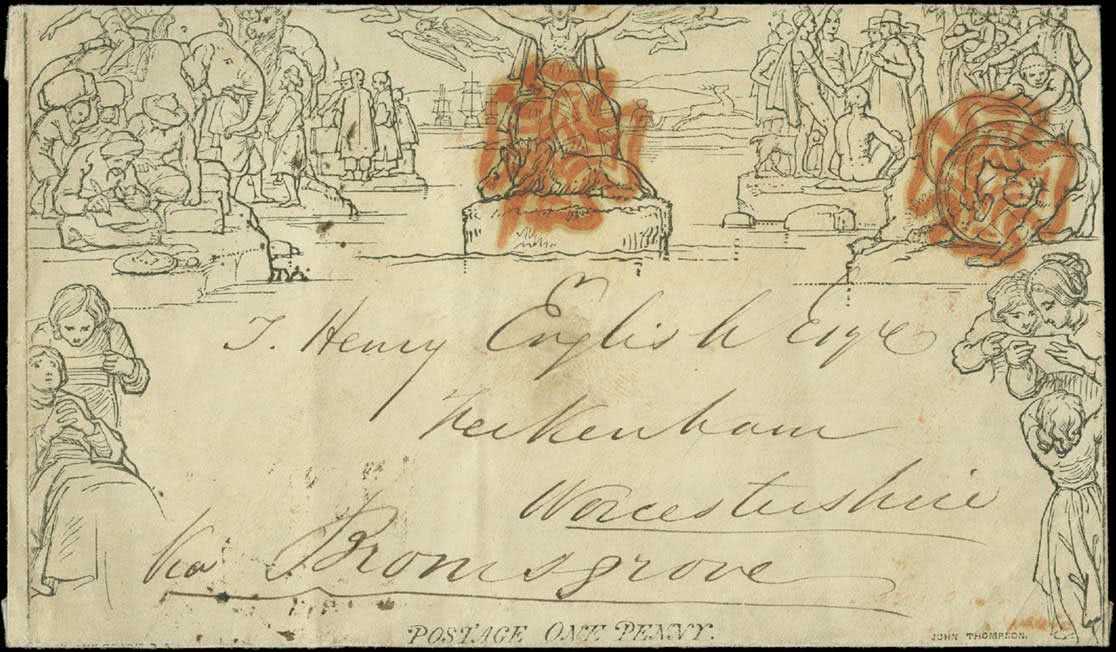 J. Henry English Esqre
Feckenham
Worcestershire
Via Bromsgrove
POSTAGE ONE PENNY.
JOHN THOMPSON.